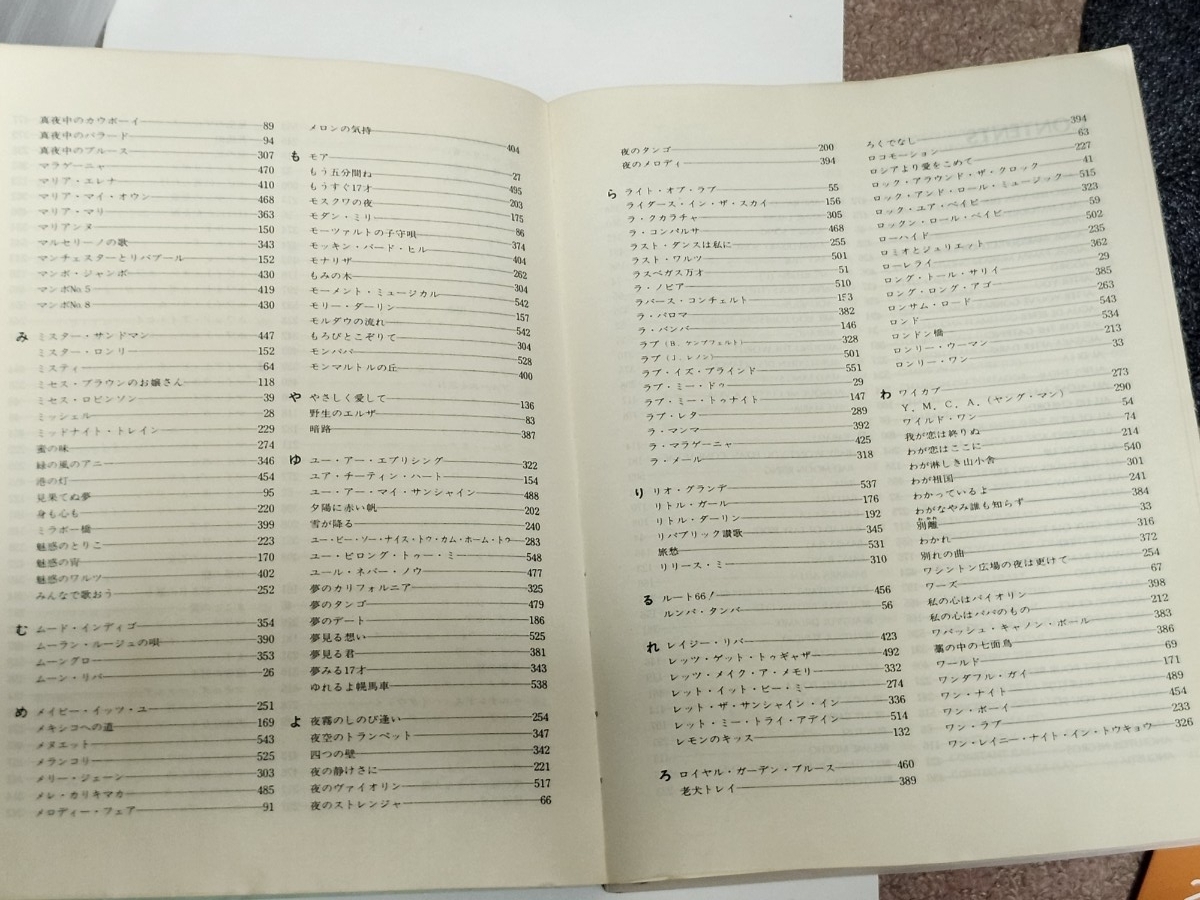 真夜中のカウボーイ 89
真夜中のバラード 94
真夜中のブルース 307
マラゲーニャ 470
マリア・エレナ 410
マリア・マイ・オウン 468
マリア・マリ 363
マリアンヌ 150
マルセリーノの歌 343
マンチェスターとリバプール 152
マンボ・ジャンボ 430
マンボNo.5 419
マンボNo.8 430
み ミスター・サンドマン 447
ミスター・ロンリ 152
ミスティ 64
ミセス・ブラウンのお嬢さん 118
ミセス・ロビンソン 39
ミッシェル 28
ミッドナイト・トレイン 229
蜜の味 274
緑の風のアニー 346
港の灯 454
見果てぬ夢 95
身も心も 220
ミラボー橋 399
魅惑のとりこ 223
魅惑の宵 170
魅惑のワルツ 402
みんなで歌おう 252
む ムード・インディゴ 354
ムーラン・ルージュの唄 390
ムーングロー 353
ムーン・リバー 26
め メイビー・イッツ・ユー 251
メキシコへの道 169
メヌエット 543
メランコリー 525
メリー・ジェーン 303
メレ・カリキマカ 485
メロディー・フェア 91
メロンの気持 404
も モア 27
もう五分間ね 495
もうすぐ17才 203
モスクワの夜 175
モダン・ミリー 86
モーツァルトの子守唄 374
モッキン・バード・ヒル 404
モナリザ 262
もみの木 304
モーメント・ミュージカル 542
モリー・ダーリン 157
モルダウの流れ 542
もろびとこぞりて 304
モンパパ 528
モンマルトルの丘 400
や やさしく愛して 136
野生のエルザ 83
暗路 387
ゆ ユー・アー・エブリシング 322
ユア・チーティン・ハート 154
ユー・アー・マイ・サンシャイン 488
夕陽に赤い帆 202
雪が降る 240
ユー・ビー・ソー・ナイス・トゥ・カム・ホーム・トゥ 283
ユー・ビロング・トゥー・ミー 548
ユール・ネバー・ノウ 477
夢のカリフォルニア 325
夢のタンゴ 479
夢のデート 186
夢見る想い 525
夢見る君 381
夢みる17才 343
ゆれるよ幌馬車 538
よ 夜霧のしのび逢い 254
夜空のトランペット 347
四つの壁 342
夜の静けさに 221
夜のヴァイオリン 517
夜のストレンジャー 66
夜のタンゴ 200
夜のメロディー 394
ら ライト・オブ・ラブ 55
ライダース・イン・ザ・スカイ 156
ラ・クカラチャ 305
ラ・コンパルサ 468
ラスト・ダンスは私に 255
ラスト・ワルツ 501
ラスベガス万才 51
ラ・ノビア 510
ラバース・コンチェルト 153
ラ・パロマ 382
ラ・バンバ 146
ラブ(B.ケンプフェルト) 328
ラブ(J.レノン) 501
ラブ・イズ・ブラインド 551
ラブ・ミー・ドゥ 29
ラブ・ミー・トゥナイト 147
ラブ・レター 289
ラ・マンマ 392
ラ・マラゲーニャ 425
ラ・メール 318
り リオ・グランデ 537
リトル・ガール 176
リトル・ダーリン 192
リパブリック讃歌 345
旅愁 531
リリース・ミー 310
る ルート66! 456
ルンバ・タンバ 56
れ レイジー・リバー 423
レッツ・ゲット・トゥギャザー 492
レッツ・メイク・ア・メモリー 332
レット・イット・ビー・ミー 274
レット・ザ・サンシャイン・イン 336
レット・ミー・トライ・アゲイン 514
レモンのキッス 132
ろ ロイヤル・ガーデン・ブルース 460
老犬トレイ 389
ろくでなし 394
ロコモーション 63
ロシアより愛をこめて 227
ロック・アラウンド・ザ・クロック 41
ロック・アンド・ロール・ミュージック 515
ロック・ユア・ベイビー 323
ロックン・ロール・ベイビー 59
ローハイド 502
ロミオとジュリエット 235
ローレライ 362
ロング・トール・サリイ 29
ロング・ロング・アゴー 385
ロンサム・ロード 263
ロンド 543
ロンドン橋 534
ロンリー・ウーマン 213
ロンリー・ワン 33
わ ワイカブ 273
Y.M.C.A.(ヤング・マン) 290
ワイルド・ワン 54
我が恋は終りぬ 74
わが恋はここに 214
わが淋しき山小舎 540
わが祖国 301
わかっているよ 241
わがなやみ誰も知らず 384
別離 33
わかれ 316
別れの曲 372
ワシントン広場の夜は更けて 254
ワーズ 67
私の心はバイオリン 398
私の心はパパのもの 212
ワバッシュ・キャノン・ボール 383
藁の中の七面鳥 386
ワールド 69
ワンダフル・ガイ 171
ワン・ナイト 489
ワン・ボーイ 454
ワン・ラブ 233
ワン・レイニー・ナイト・イン・トウキョウ 326